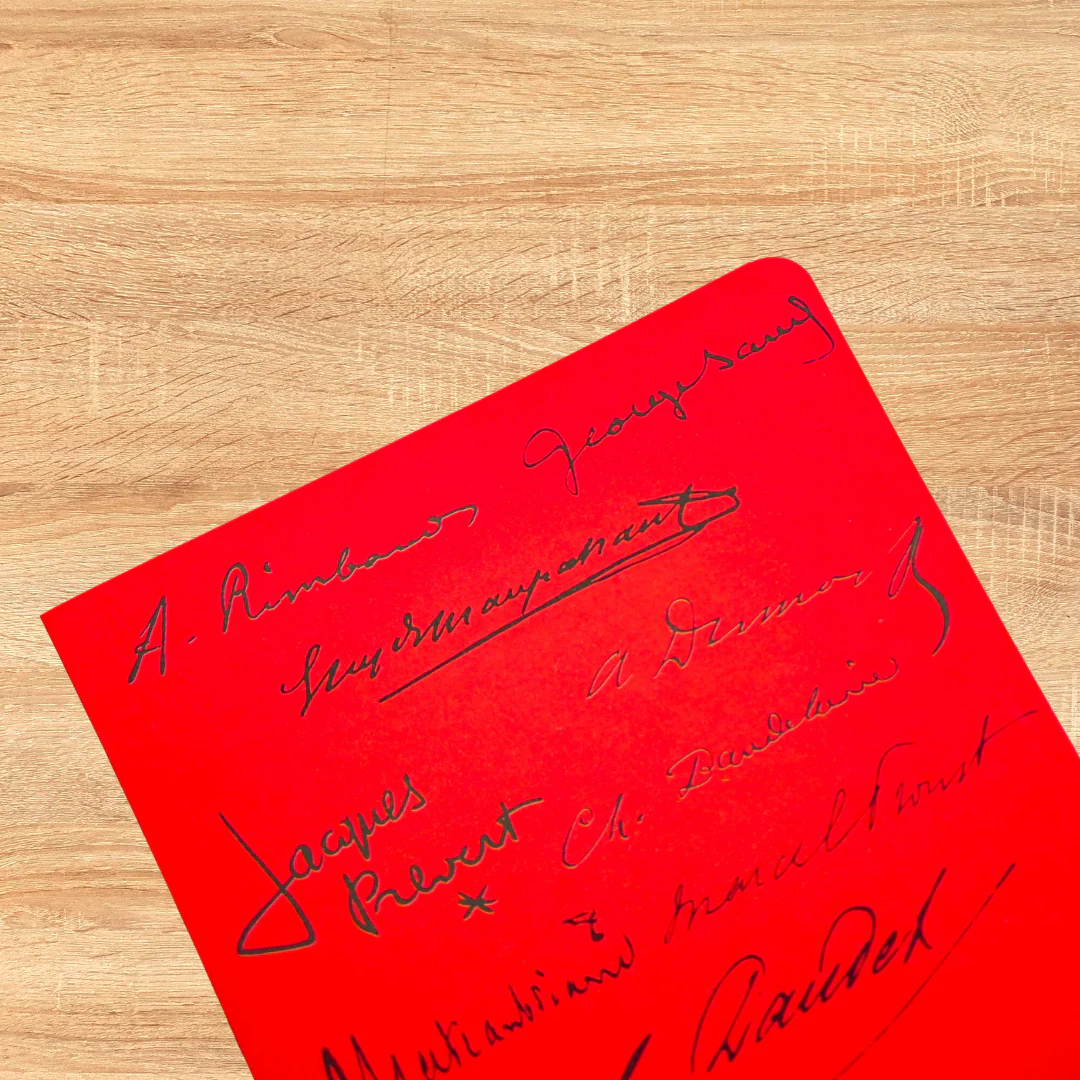 A. Rimbaud
George Sand
Guy de Maupassant
A Dumas
Jacques
Prévert
Ch. Baudelaire
Marcel Proust
Chateaubriand
A Daudet